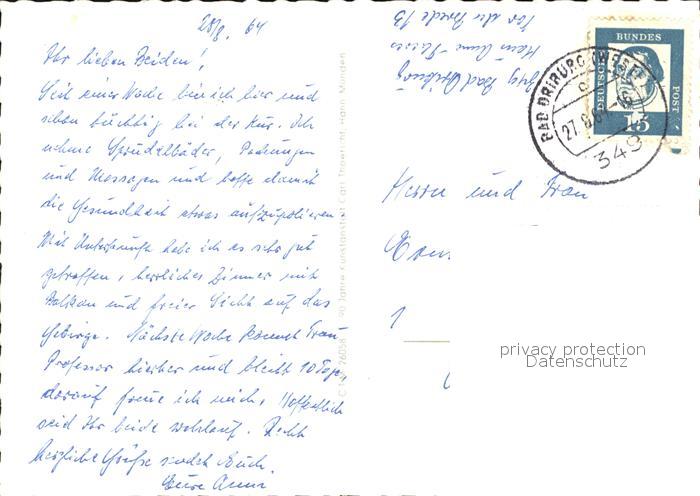 28/8. 64
Ihr lieben Beiden!,
Seit einer Woche bin ich hier und
schon tüchtig bei der Kur. Ich
nehme Sprudelbäder, Packungen
und Massagen und hoffe damit
die Gesundheit etwas aufzupolieren
Mit Unterkunft habe ich es sehr gut
getroffen, herrliches Zimmer mit
Balkon und freier Sicht auf das
Gebirge. Nächste Woche kommt Frau
Professor hierher und bleibt 10 Tage
darauf freue ich mich. Hoffentlich
seid Ihr beide wohlauf. Recht
herzliche Grüße sendet Euch.
Eure Anna
90 Jahre Kunstanstalt Carl Thoericht, Hann. Münden
Bad Driburg
Haus
BAD DRIBURG (WESTF)
27.8.64
349
DEUTSCHE
BUNDES
POST
15
Herrn und Frau
1
privacy protection
Datenschutz